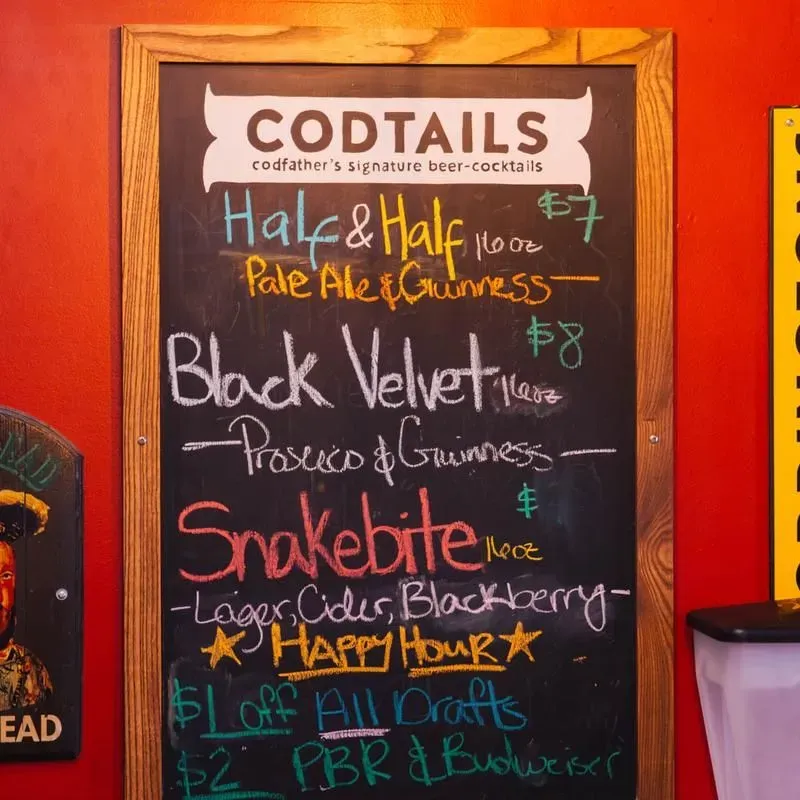 CODTAILS
codfather's signature beer-cocktails
Half & Half 16 oz $7
Pale Ale & Guinness —
Black Velvet 16oz $8
— Prosecco & Guinness —
Snakebite 16oz $
- Lager, Cider, Blackberry -
★ HAPPY HOUR ★
$1 off All Drafts
$2 PBR & Budweiser
EAD